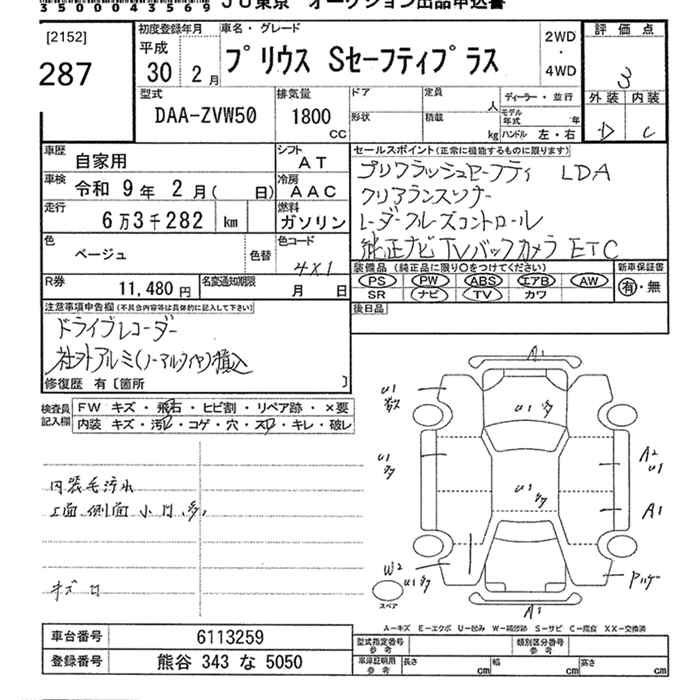 350004313509 JU東京 オークション出品申込書
[2152]
287
初度登録年月
平成
30 2月
車名・グレード
プリウス Sセーフティプラス
2WD
・
4WD
評価点
3
外装 内装
D C
型式
DAA-ZVW50
排気量
1800
CC
ドア
形状
定員
人
積載
kg
ディーラー・並行
モデル
年式
年
ハンドル 左・右
車歴
自家用
シフト
AT
車検
令和 9年 2月( 日)
冷房
AAC
走行
6万3千282 km
燃料
ガソリン
色
ベージュ
色替
色コード
4X1
R券
11,480円
名変通知期限
月 日
セールスポイント(正常に機能するものに限ります)
プリクラッシュセーフティ LDA
クリアランスソナー
レーダークルーズコントロール
純正ナビ TV バックカメラ ETC
装備品(純正品に限り○をつけてください)
PS PW ABS エアB AW
SR ナビ TV カワ
新車保証書
有・無
後日品
注意事項申告欄(不具合内容等は具体的に記入して下さい)
ドライブレコーダー
社外アルミ(ノーマルタイヤ)積込
修復歴 有〔箇所 〕
検査員
記入欄
FW キズ・飛石・ヒビ割・リペア跡・×要
内装 キズ・汚・コゲ・穴・スレ・キレ・破レ
内装毛汚れ
上面側面小凹多
キズ凹
A1
U1
U1
U1
U1
A2
U1
A1
W2
U1
A1
スペア
A—キズ E—エクボ U—凹み W—補修跡 S—サビ C—腐食 XX—交換済
車台番号 6113259
登録番号 熊谷 343 な 5050
型式指定番号
参考
類別区分番号
参考
車庫証明用
参考
長さ cm
幅 cm
高さ cm